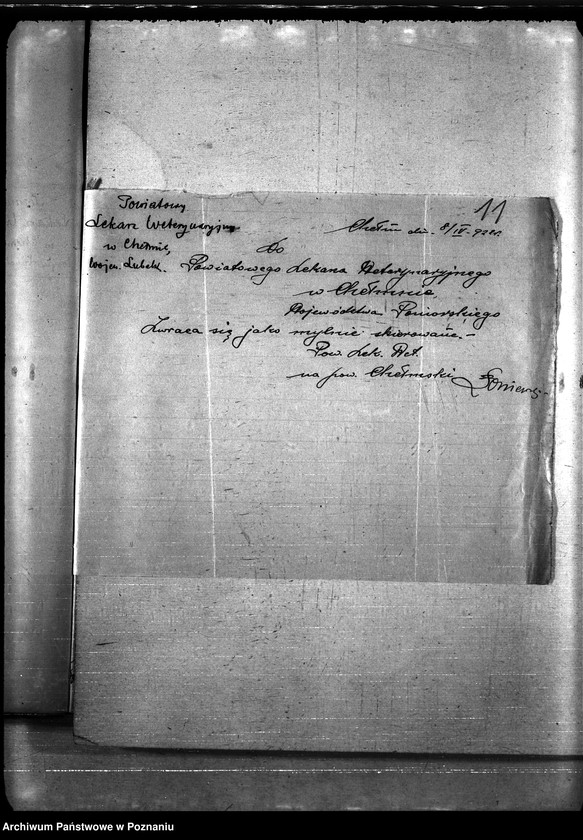 11
Powiatowy
Lekarz Weterynaryjny
w Chełmie,
Wojew. Lubelk.
Chełm dn. 8/IV-922r.
Do
Powiatowego Lekarza Weterynaryjnego
w Chełmnie,
Województwa Pomorskiego
Zwraca się jako mylnie skierowane.-
Pow. Lek. Wet.
na pow. Chełmski
Archiwum Państwowe w Poznaniu